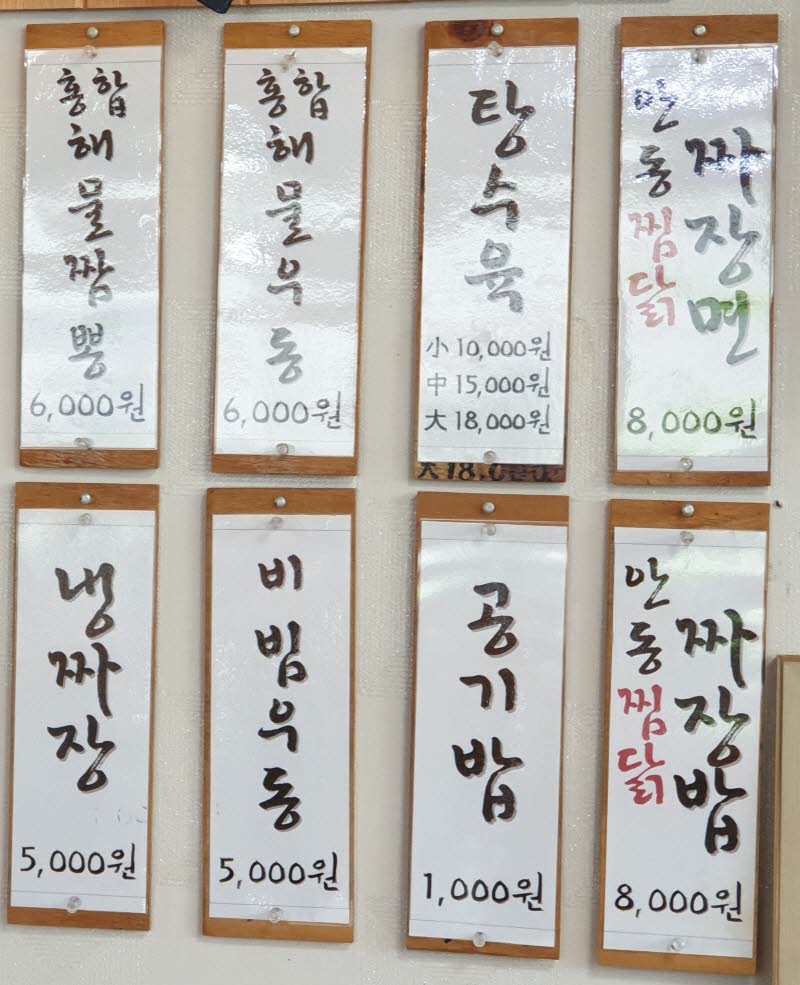 홍합
해물짬뽕
6,000원
홍합
해물우동
6,000원
탕수육
小 10,000원
中 15,000원
大 18,000원
大 18,000원
안동찜닭
짜장면
8,000원
냉짜장
5,000원
비빔우동
5,000원
공기밥
1,000원
안동찜닭
짜장밥
8,000원